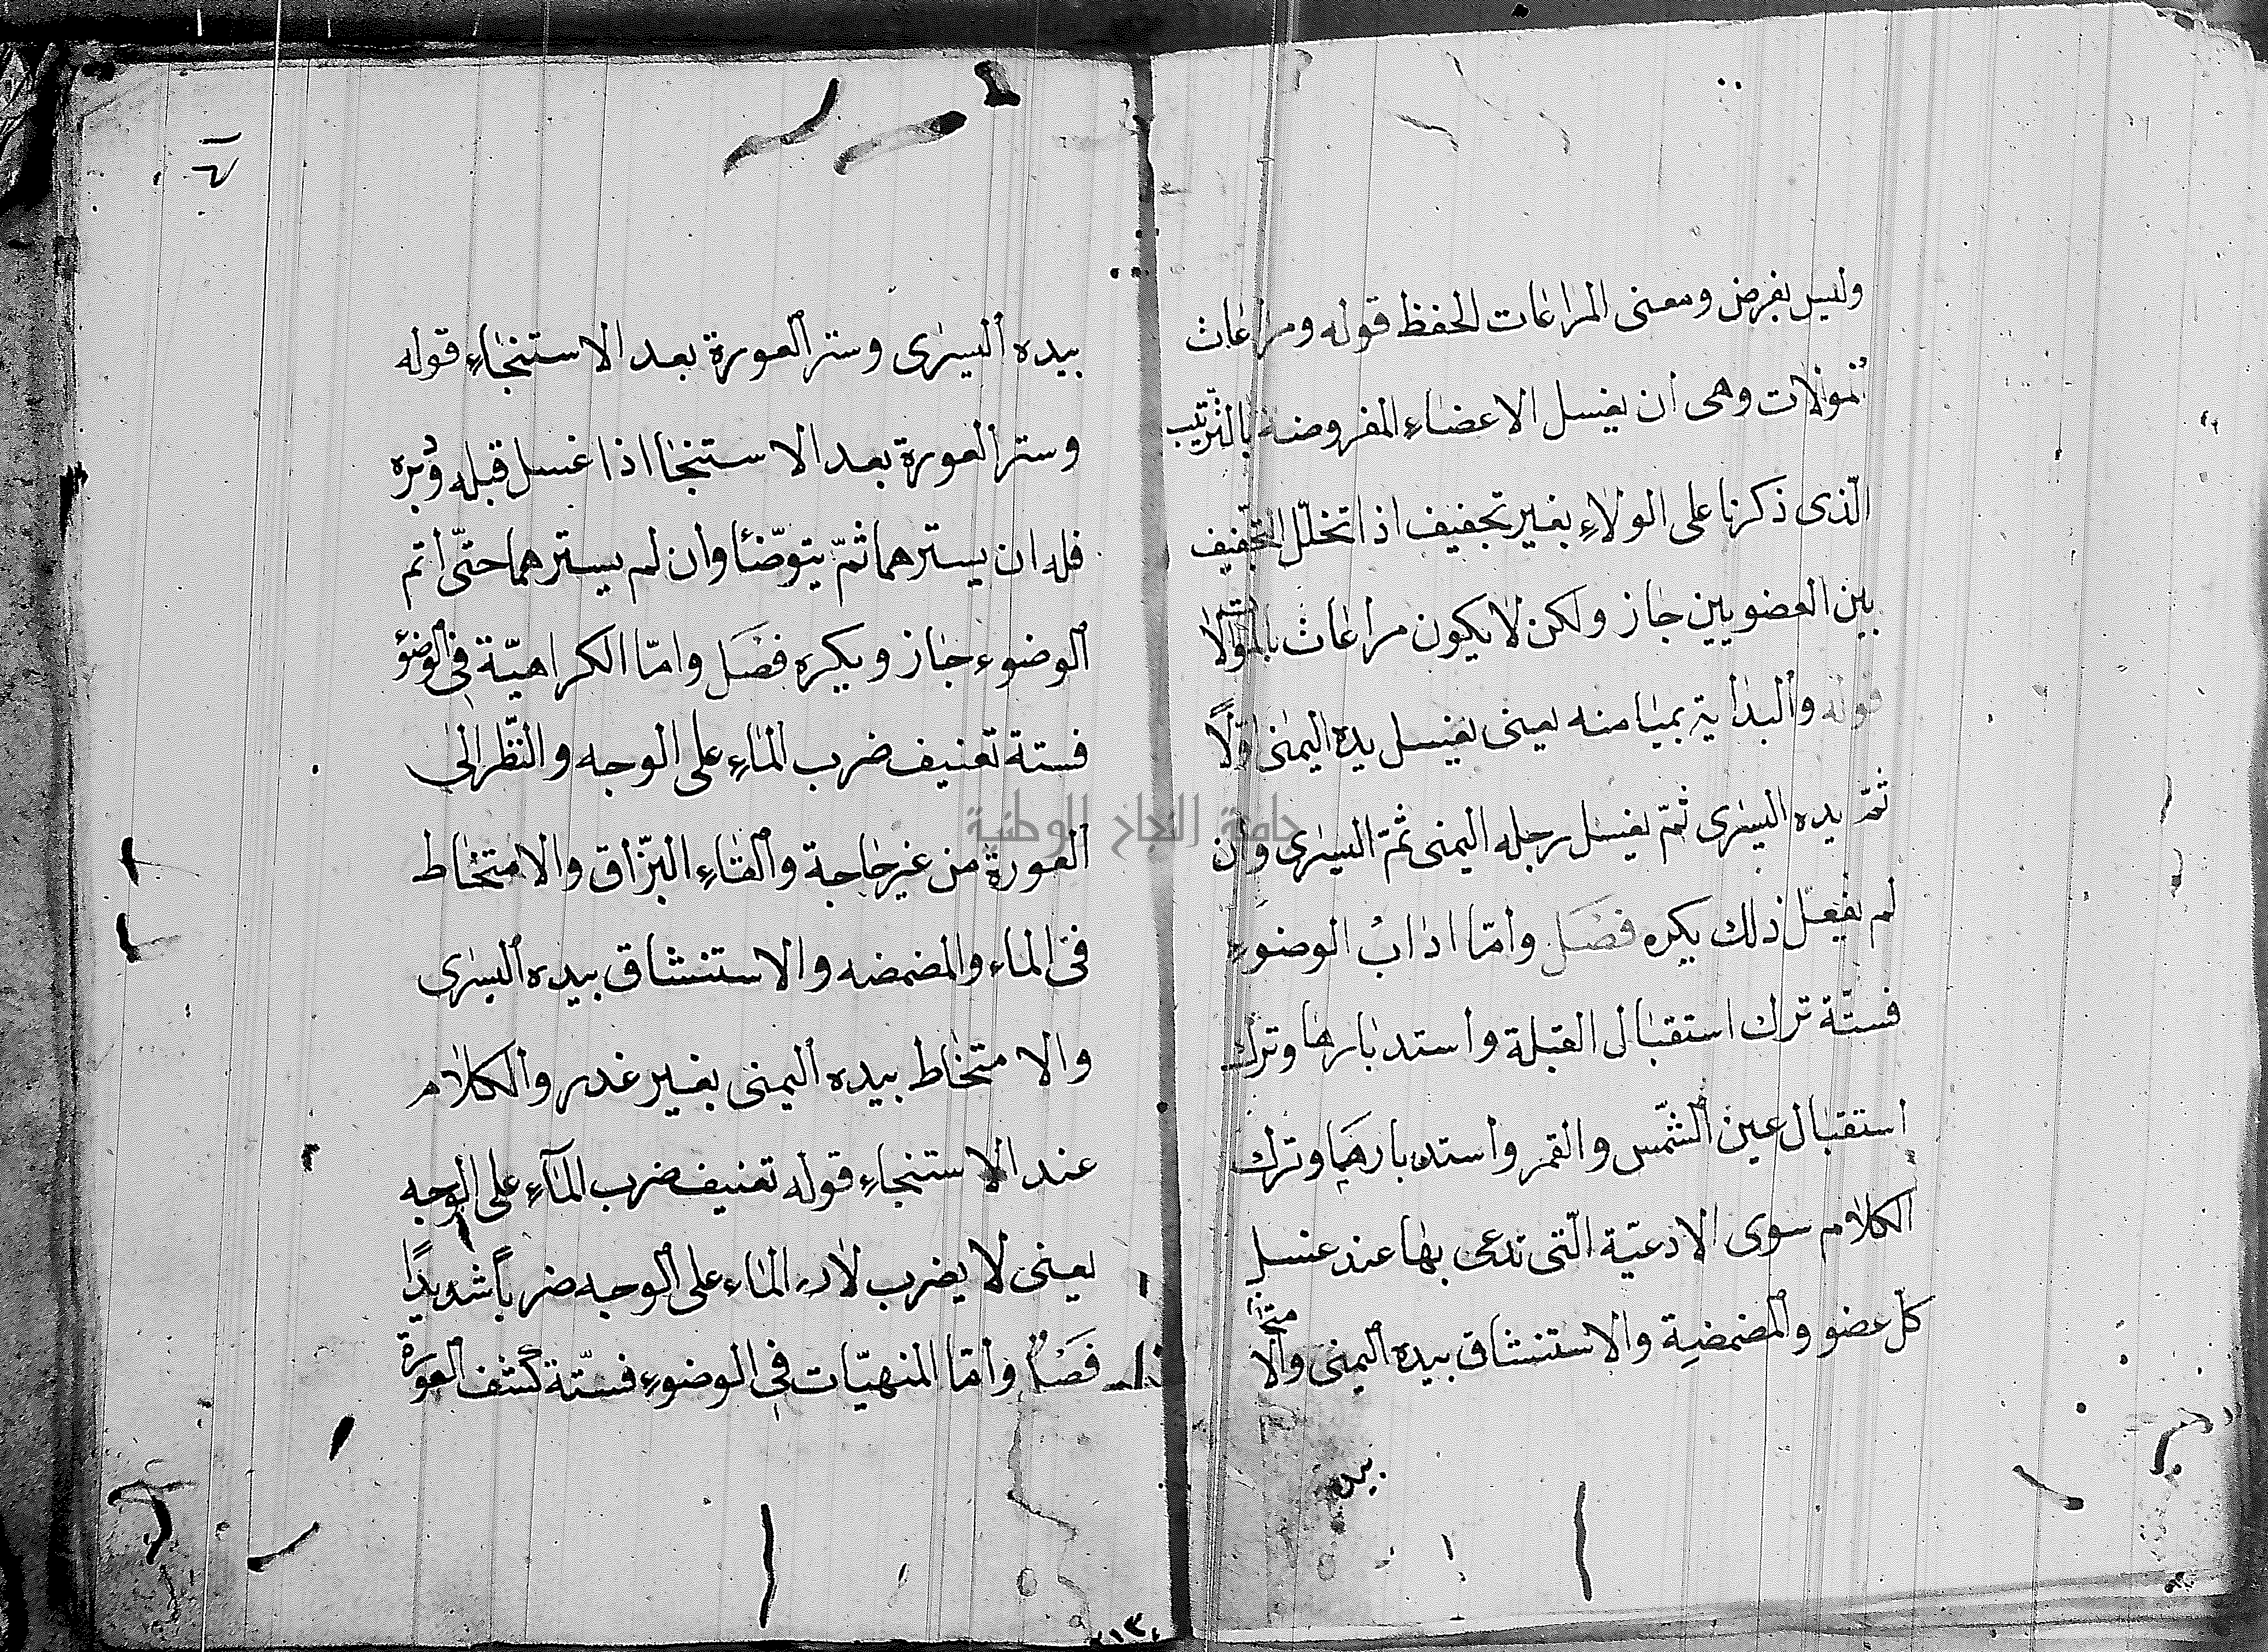 وليس بفرض ومعنى المراعات الحفظ قوله ومراعاث
الموالات وهى ان يغسل الاعضاء المفروضة بالترتيب
الّذى ذكرنا على الولاء بغير تجفيف اذا تخلّل التجفيف
بين العضويين جاز ولكن لا يكون مراعاث بالموالات
قوله والبداية بميامنه يعينى يغسل يده اليمنى اوّلاً
ثمّ يده اليسرى ثمّ يغسل رجله اليمنى ثمّ اليسرى وان
لم يفعل ذلك يكره فصل وامّا اداب الوضوء
فستّة ترك استقبال القبلة واستدبارها وترك
استقبال عين الشّمس والقمر واستدبارهما وترك
الكلام سوى الادعيّة الّتى تدعى بها عند غسل
كل عضو والمضمضة والاستنشاق بيده اليمنى والامتخاط
بيده
بيده اليسرى وستر العورة بعد الاستنجاء قوله
وستر العورة بعد الاستنجا اذا غسل قبله ودبره
فله ان يسترهما ثمّ يتوضّئا وان لم يسترهما حتّى اتم
الوضوء جاز ويكره فصل وامّا الكراهيّة فى الوضوء
فستة تعنيف ضرب الماء على الوجه والنّظر الى
العورة من غير حاجة والقاء البزّاق والامتخاط
فى الماء والمضمضه والاستنشاق بيده اليسرى
والامتخاط بيده اليمنى بغير غدر والكلام
عند الاستنجاء قوله تعنيف ضرب المآء على الوجه
يعينى لا يضرب الماء على الوجه ضرباً شديدًا
فصل وامّا المنهيّات فى الوضوء فستّة كشف العورة
١٣
جامعة النجاح الوطنية